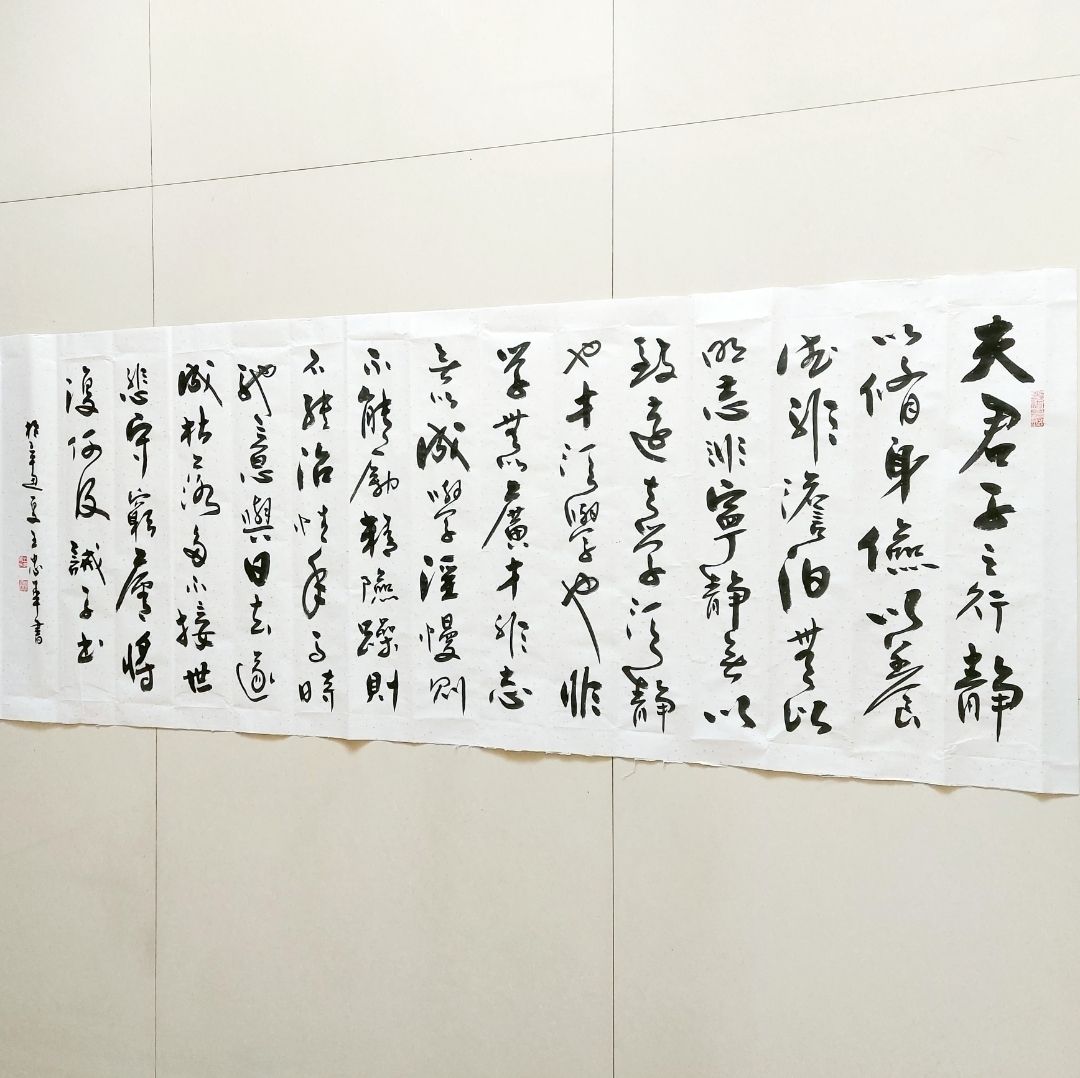 夫君子之行静
以脩身儉以養
德非澹泊無以
明志非寧静無以
致遠夫学須静
也才須學也非
学無以廣才非志
無以成學淫慢則
不能勵精險躁則
不能治性年与時
馳意與日去遂
成枯落多不接世
悲守窮廬將
復何及 誡子書
夏 書